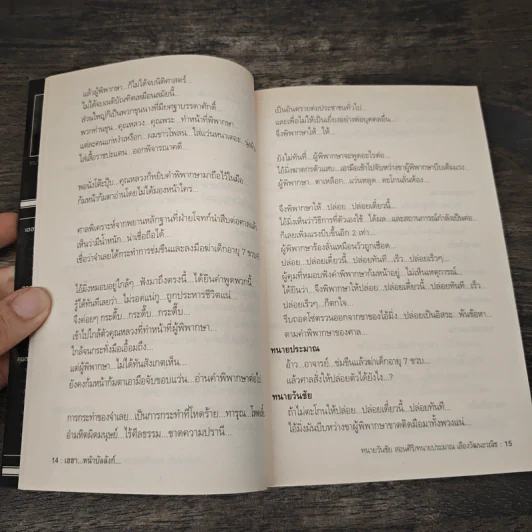 แล้วผู้พิพากษา...ก็ไม่ได้จบนิติศาสตร์...
ไม่ได้จบเนติบัณฑิตเหมือนสมัยนี้...
ส่วนใหญ่ก็เป็นพวกขุนนางที่มียศฐาบรรดาศักดิ์...
พวกท่านขุน...คุณหลวง...คุณพระ...ทำหน้าที่พิพากษา...
แต่ละคนแก่หง่าเหงือก...ผมขาวโพลน...ใส่แว่นหนาเตอะ...
ใส่เสื้อราชปะแตน...ออกพิจารณาคดี...
พอนั่งโต๊ะปุ๊บ...คุณหลวงก็หยิบคำพิพากษามาถือไว้ในมือ
ก้มหน้าก้มตาอ่านโดยไม่ได้มองหน้าใคร...
ศาลพิเคราะห์จากพยานหลักฐานที่ฝ่ายโจทก์นำสืบต่อศาลแล้ว
เห็นว่ามีน้ำหนัก...น่าเชื่อถือได้...
เชื่อว่าจำเลยได้กระทำการข่มขืนและลงมือฆ่าเด็กอายุ 7 ขวบ
ไอ้มิ่งหมอบอยู่ใกล้ๆ...ฟังมาถึงตรงนี้...ได้ยินคำพูดพวกนี้...
รู้ได้ทันทีเลยว่า...ไม่รอดแน่กู...ถูกประหารชีวิตแน่...
จึงค่อยๆ กระดึ๊บ...กระดึ๊บ...กระดึ๊บ...
เข้าไปใกล้ตัวคุณหลวงที่ทำหน้าที่ผู้พิพากษา...
ใกล้จนกระทั่งมือเอื้อมถึง...
แต่ผู้พิพากษา...ไม่ได้ทันสังเกตเห็น...
ยังคงก้มหน้าก้มตาเอามือจับขอบแว่น...อ่านคำพิพากษาต่อไป
การกระทำของจำเลย...เป็นการกระทำที่โหดร้าย...ทารุณ...
อำมหิตผิดมนุษย์...ไร้ศีลธรรม...ขาดความปรานี...
14 : เฮฮา...หน้าบัลลังก์...
เป็นอันตรายต่อประชาชนทั่วไป...
และเพื่อไม่ให้เป็นเยี่ยงอย่างต่อบุคคลอื่น...
จึงพิพากษาให้...ให้...
ยังไม่ทันที่...ผู้พิพากษาจะพูดอะไรต่อ...
ไอ้มิ่งฉวยโอกาส...เอามือเข้าไปจับหว่างขาผู้พิพากษาบีบเต็มแรง...
ผู้พิพากษา...ตาเหลือก...แว่นหลุด...ตะโกนลั่นห้อง...
จึงพิพากษาให้...ปล่อย...ปล่อยเดี๋ยวนี้...
ไอ้มิ่งเห็นว่าวิธีการที่ตัวเองใช้...ได้ผล...และสถานการณ์กำลังเป็นต่อ...
ก็เลยเพิ่มแรงบีบขึ้นอีก 2 เท่า...
ผู้พิพากษาร้องลั่นเหมือนวัวถูกเชือด...
ปล่อย...ปล่อยเดี๋ยวนี้...ปล่อยทันที...เร็ว...ปล่อยเร็วๆ...
ผู้คุมที่หมอบฟังคำพิพากษาก้มหน้าอยู่...ไม่เห็นเหตุการณ์...
ได้ยินว่า...จึงพิพากษาให้ปล่อย...ปล่อยเดี๋ยวนี้...ปล่อยทันที...เร็ว
ปล่อยเร็วๆ...ก็ตกใจ...
รีบถอดโซ่ตรวนออกจากขาของไอ้มิ่ง...ปล่อยเป็นอิสระ...พ้นข้อหา...
ตามคำพิพากษาของศาล...
ทนายประมาณ
อ้าว...อาจารย์...ข่มขืนแล้วฆ่าเด็กอายุ 7 ขวบ...
แล้วศาลสั่งให้ปล่อยตัวได้ยังไง...?
ทนายวันชัย
ถ้าไม่ตะโกนให้ปล่อย...ปล่อยเดี๋ยวนี้...ปล่อยทันที...
ไอ้มิ่งมันบีบหว่างขาผู้พิพากษาขาดติดมือมาทั้งพวงแน่...
ทนายวันชัย สอนศิริ/ทนายประมาณ เลืองวัฒนะวณิช : 15